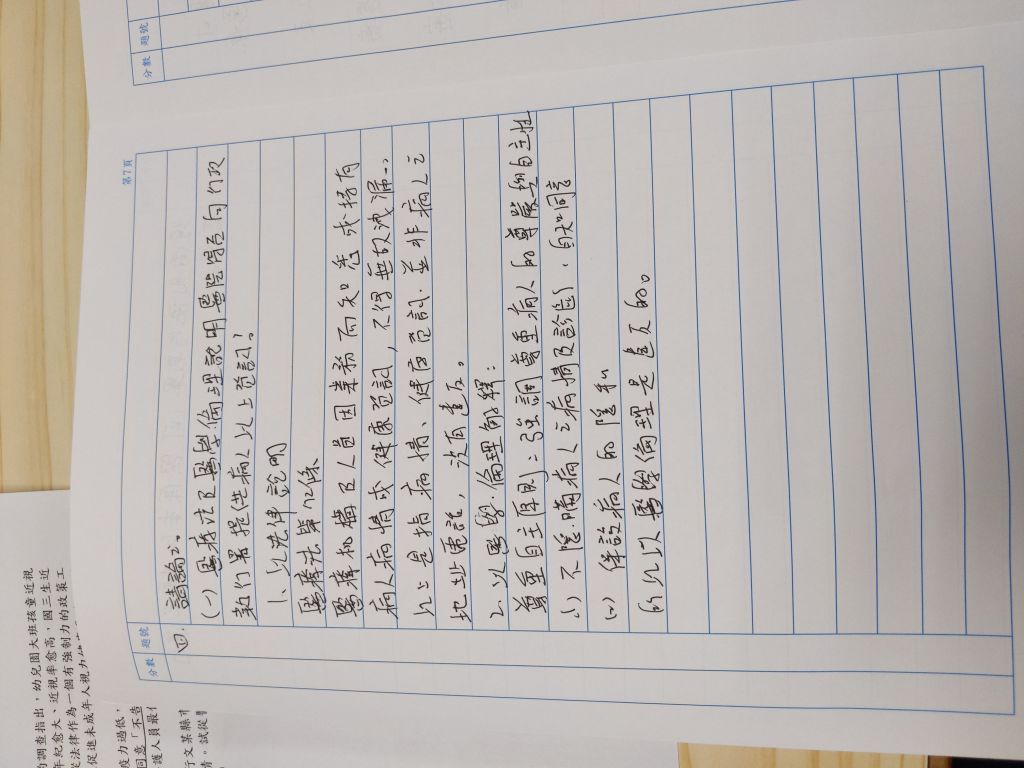 分數 題號
第7頁
分數 題號
四. 請論述。
(一) 醫療法及醫學倫理說明醫院得否向行政
執行署提供病人以上資訊?
1、以法律說明
醫療法第72條
醫療機構及人員因業務而知悉或持有
病人病情或健康資訊,不得無故洩漏。
以上是指病情、健康資訊,並非病人之
地址電話,沒有違反。
2、以醫學倫理解釋:
尊重自主原則:強調尊重病人的尊嚴與自主性
(1) 不隱瞞病人之病情及診斷、自知同意
(2) 保護病人的隱私
所以以醫學倫理是違反的。
調查指出,幼兒園大班孩童近視
年紀愈大、近視率愈高,國三生近
從法律作為一個有強制力的政策工
促進未成年人視力
疫力過低,
同意「不告
護人員最
行文某縣市
情。試從